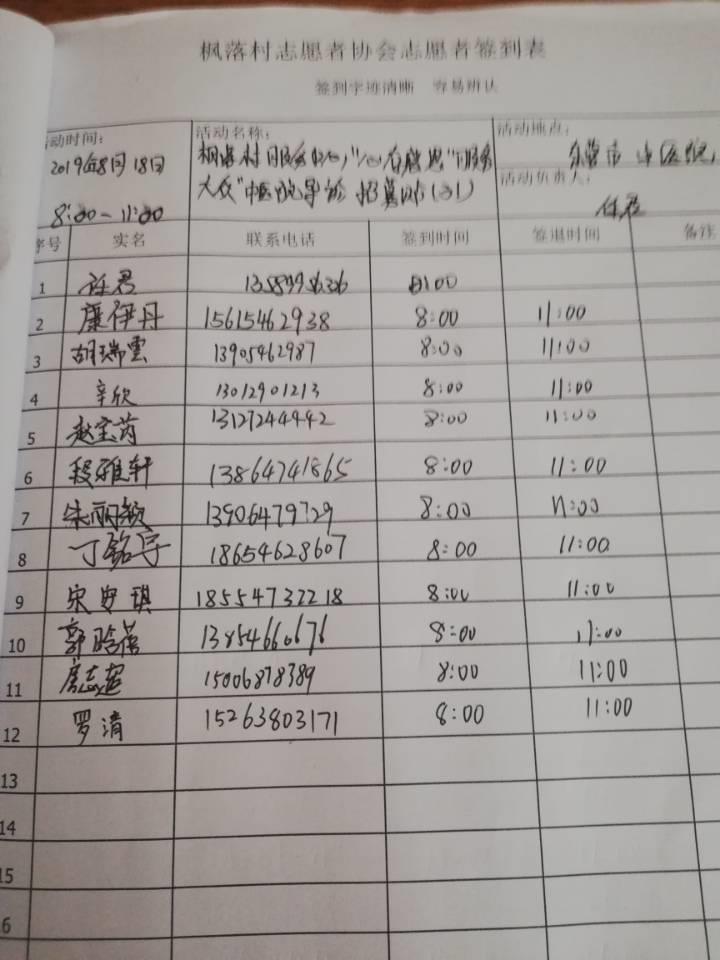 枫落村志愿者协会志愿者签到表
签到字迹清晰 容易辨认
动时间: 活动名称: 活动地点:
2019年8月18日 枫落村服务中心"心存感恩"服务 东营市中医院
大众"中医院导诊招募 活动负责人:
8:00-11:00 任君
序号 实名 联系电话 签到时间 签退时间 备注
1 任君 8:00
2 廉伊丹 15615462938 8:00 11:00
3 胡瑞雲 13905462987 8:00 11:00
4 辛欣 13012901213 8:00 11:00
5 赵宝芮 13127244442 8:00 11:00
6 段雅轩 13864741865 8:00 11:00
7 朱丽颖 13906479729 8:00 11:00
8 丁铭导 18654628607 8:00 11:00
9 宋安琪 18554732218 8:00 11:00
10 郭晗蓓 13854660676 8:00 11:00
11 詹志超 15006878389 8:00 11:00
12 罗清 15263803171 8:00 11:00
13
14
15
6